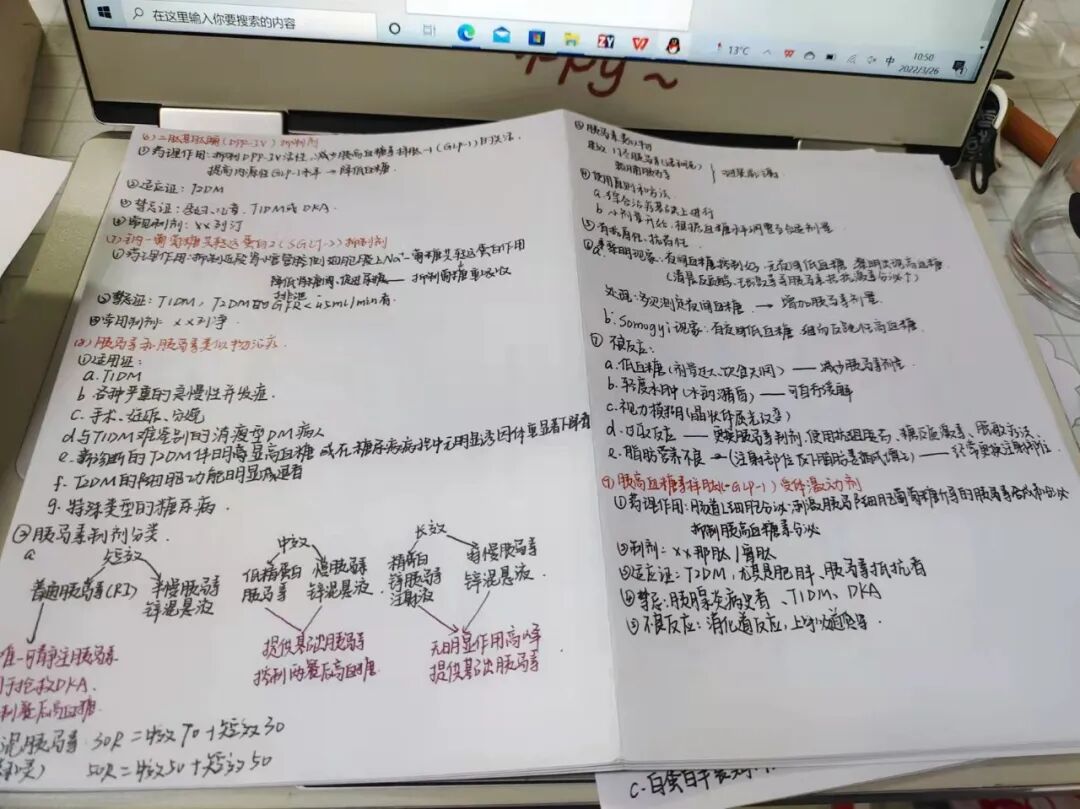 在这里输入你要搜索的内容
13°C
中
10:50
2022/3/26
ppy~
(6) 二肽基肽酶(DPP-IV)抑制剂
①药理作用:抑制DPP-IV活性,减少胰高血糖素样肽-1(GLP-1)的灭活
提高内源性GLP-1水平→降低血糖.
②适应证:T2DM
③禁忌证:孕妇、儿童、T1DM或DKA.
④常见制剂:xx列汀
(7)钠-葡萄糖共转运蛋白2(SGLT-2)抑制剂
①药理作用:抑制近段肾小管管腔侧细胞膜上Na⁺-葡萄糖共转运蛋白作用
降低肾糖阈,促进尿糖排泄 抑制葡萄糖重吸收
禁忌证:T1DM,T2DM的GFR<45ml/min者.
常用制剂:xx列净.
(8)胰岛素和胰岛素类似物治疗.
①适用证:
a.T1DM
b.各种严重的急慢性并发症.
c.手术、妊娠、分娩
d.与T1DM难鉴别的消瘦型DM病人
e.新诊断的T2DM伴明显高血糖 或在糖尿病病程中无明显诱因体重显著下降者
f.T2DM的β细胞功能明显减退者
g.特殊类型的糖尿病.
②胰岛素制剂分类.
a 短效 中效 长效
普通胰岛素(RI) 半慢胰岛素锌混悬液 低精蛋白胰岛素 慢胰岛素锌混悬液. 精蛋白锌胰岛素注射液 特慢胰岛素锌混悬液.
唯一可静注胰岛素 提供基础胰岛素 无明显作用高峰
于抢救DKA. 控制两餐后高血糖 提供基础胰岛素
制餐后高血糖.
混胰岛素 30R=中效70+短效30
50R=中效50+短效50
④使用原则和方法.
a.综合治疗基础上进行
b.小剂量开始,根据血糖水平调整至合适剂量
黎明现象:夜间血糖控制好,无夜间低血糖,黎明出现高血糖
处理:多次测定夜间血糖. →增加胰岛素剂量.
b:Somogyi现象:有夜间低血糖 继而反跳性高血糖.
⑦不良反应:
a.低血糖 减少胰岛素剂量
b.轻度水肿(水钠潴留)——可自行缓解
c.视力模糊(晶状体屈光改变)
d.过敏反应——更换胰岛素制剂,使用抗组胺药、糖皮质激素、脱敏疗法
e.脂肪营养不良 —— 经常更换注射部位.
(9)胰高血糖素样肽-1(GLP-1)受体激动剂
①药理作用:肠道L细胞分泌;刺激胰岛β细胞葡萄糖介导的胰岛素合成和分泌
抑制胰高血糖素分泌
②制剂:xx那肽/鲁肽
③适应证:T2DM,尤其是肥胖、胰岛素抵抗者
④禁忌:胰腺炎病史者、T1DM、DKA
⑤不良反应:消化道反应,上呼吸道感染
c.白蛋白